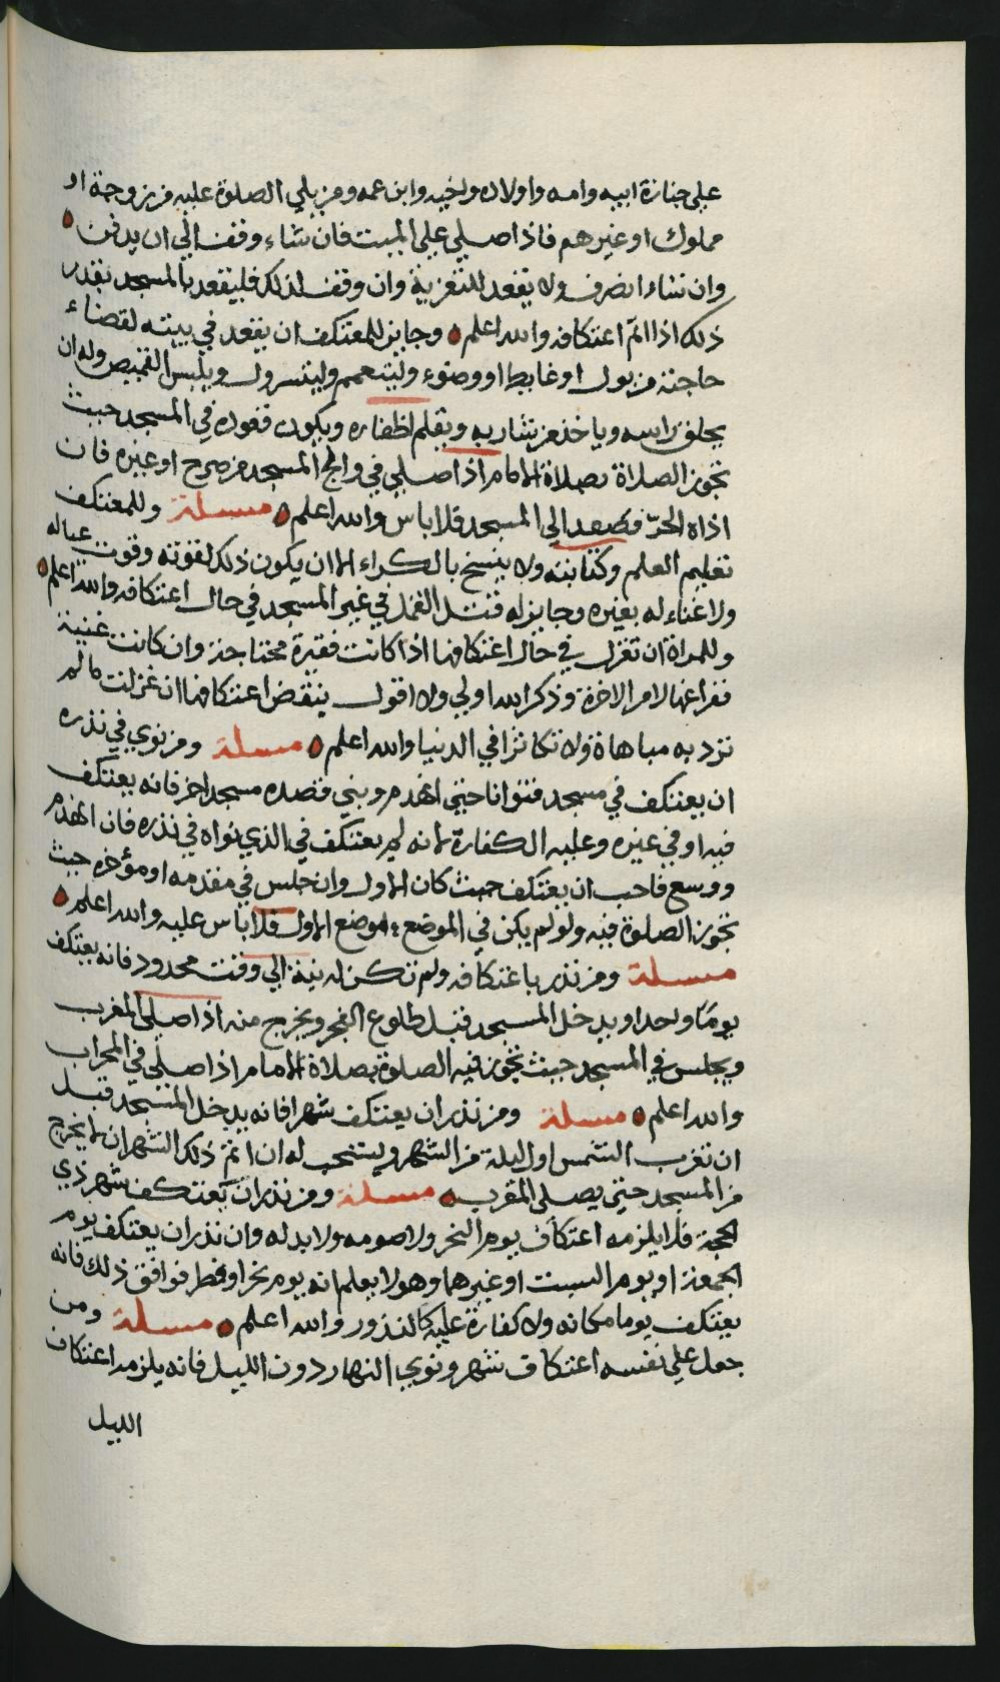 على جنازة ابيه وامه واولاده واخيه وابن عمه ومن يلي الصلوة عليه من زوجة او
مملوك او غيرهم فاذا صلى على الميت فان شاء وقف الي ان يدفن
وان شاء انصرف ولا يقعد للتعزية وان وقف لذلك فليقعد بالمسجد بقدر
ذلك اذا اتم اعتكافه والله اعلم وجايز للمعتكف ان يقعد في بيته لقضاء
حاجته من بول او غايط او وضوء وليتعمم وليتسرول ويلبس القميص وله ان
يحلق راسه وياخذ من شاربه ويقلم اظفاره ويكون قعوده في المسجد حيث
تجوز الصلاة بصلاة الامام اذا صلى في والج المسجد من صرح او غيره فان
اذاه الحرّ فصعد الي المسجد فلا باس والله اعلم مسلة وللمعتكف
تعليم العلم وكتابته ولا ينسخ بالكراء الا ان يكون ذلك لقوته وقوت عياله
ولا غناء له بغيره وجايز له قتل القمل في غير المسجد في حال اعتكافه والله اعلم
وللمراة ان تغزل في حال اعتكافها اذا كانت فقيرة محتاجة وان كانت غنية
ففراغها لامر الاخرة وذكر الله اولى ولا اقول ينتقض اعتكافها ان غزلت ما لم
ترد به مباهاة ولا تكاثرا في الدنيا والله اعلم مسلة ومن نوي في نذره
ان يعتكف في مسجد فتوانا حتي انهدم وبني قصده مسجد اخر فانه يعتكف
فيه او في غيره وعليه الكفارة لانه لم يعتكف في الذي نواه في نذره فان انهدم
ووسع فاحب ان يعتكف حيث كان الاول وان جلس في مقدمه او مؤخره حيث
تجوز الصلوة فيه ولو لم يكن في الموضع موضع الاول فلا باس عليه والله اعلم
مسلة ومن نذر باعتكافه ولم تكن له نية الي وقت محدود فانه يعتكف
يومًا واحدا ويدخل المسجد قبل طلوع الفجر ويخرج منه اذا صلى المغرب
ويجلس في المسجد حيث تجوز فيه الصلوة بصلاة الامام اذا صلى في المحراب
والله اعلم مسلة ومن نذر ان يعتكف شهرا فانه يدخل المسجد قبل
ان تغرب الشمس اول ليلة من الشهر ويستحب له ان اتم ذلك الشهر ان لا يخرج
من المسجد حتى يصلي المغرب مسلة ومن نذر ان يعتكف شهر ذي
الحجة فلا يلزمه اعتكاف يوم النحر ولا صومه ولا بدله وان نذر ان يعتكف يوم
الجمعة او يوم السبت او غيرهما وهو لا يعلم انه يوم نحر او فطر فوافق ذلك فانه
يعتكف يوما مكانه ولا كفارة عليه كالنذور والله اعلم مسلة ومن
جعل علي نفسه اعتكاف شهر ونوي النهار دون الليل فانه يلزمه اعتكاف
الليل